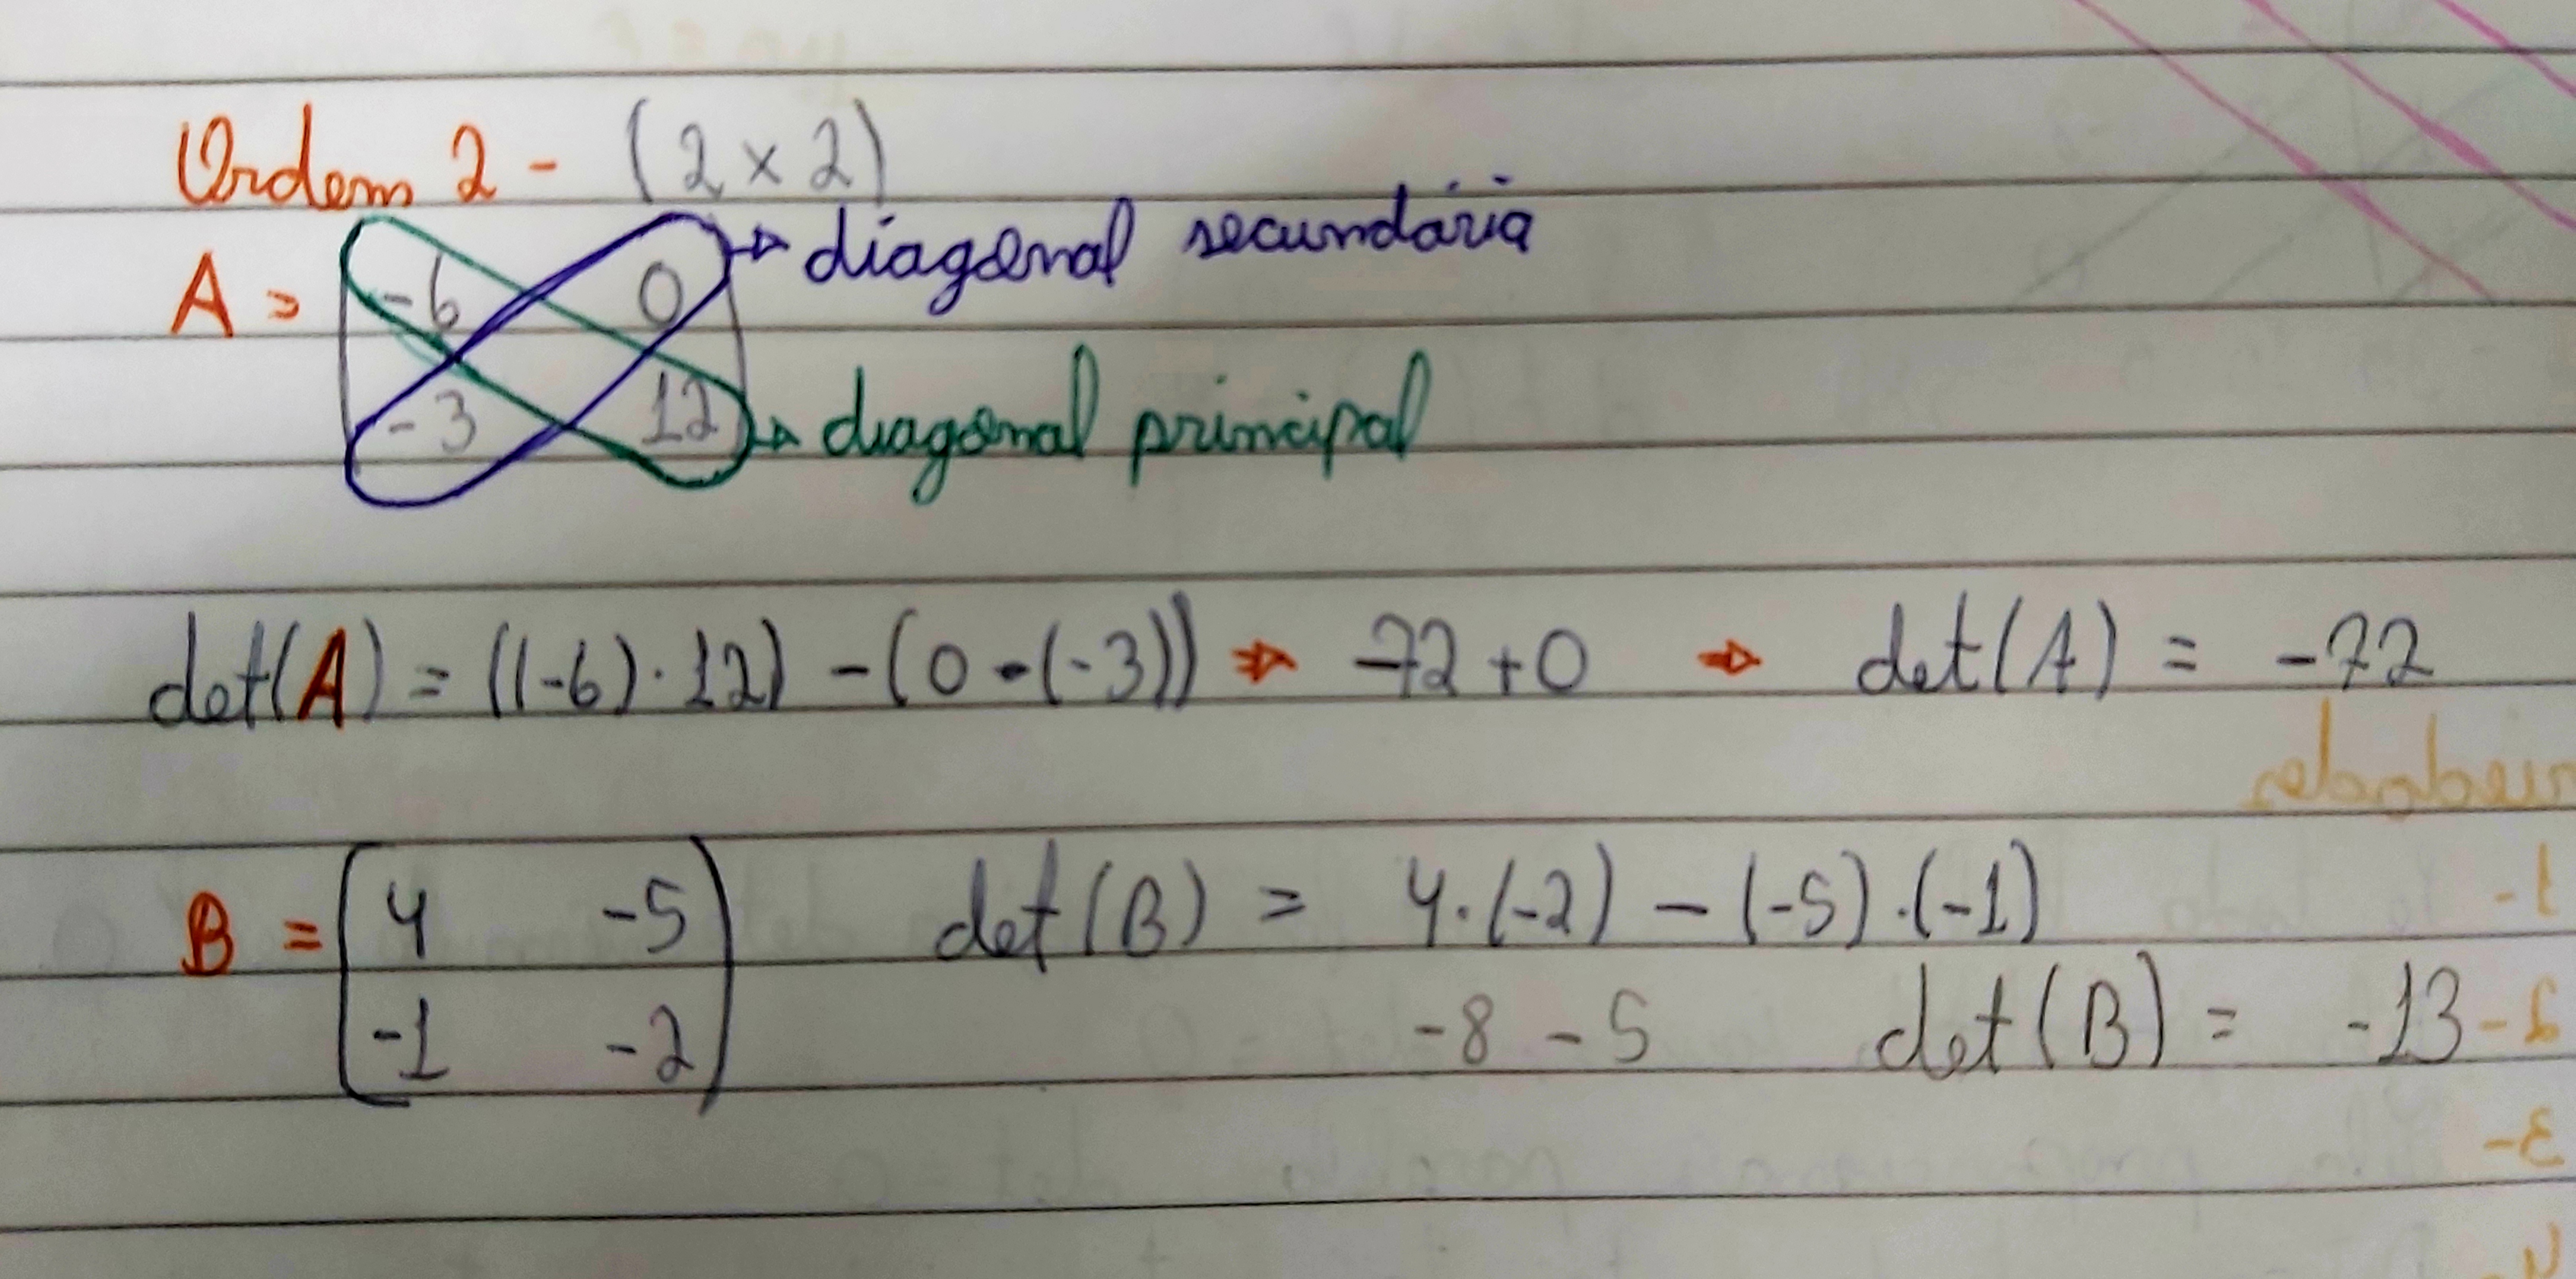 Ordem 2 - (2 x 2)
A = -6 0 → diagonal secundária
-3 12 → diagonal principal
det(A) = ((-6) · 12) - (0 - (-3)) ⇒ -72 + 0 ⇒ det(A) = -72
B = 4 -5 det(B) = 4 · (-2) - (-5) · (-1)
-1 -2 -8 - 5 det(B) = -13